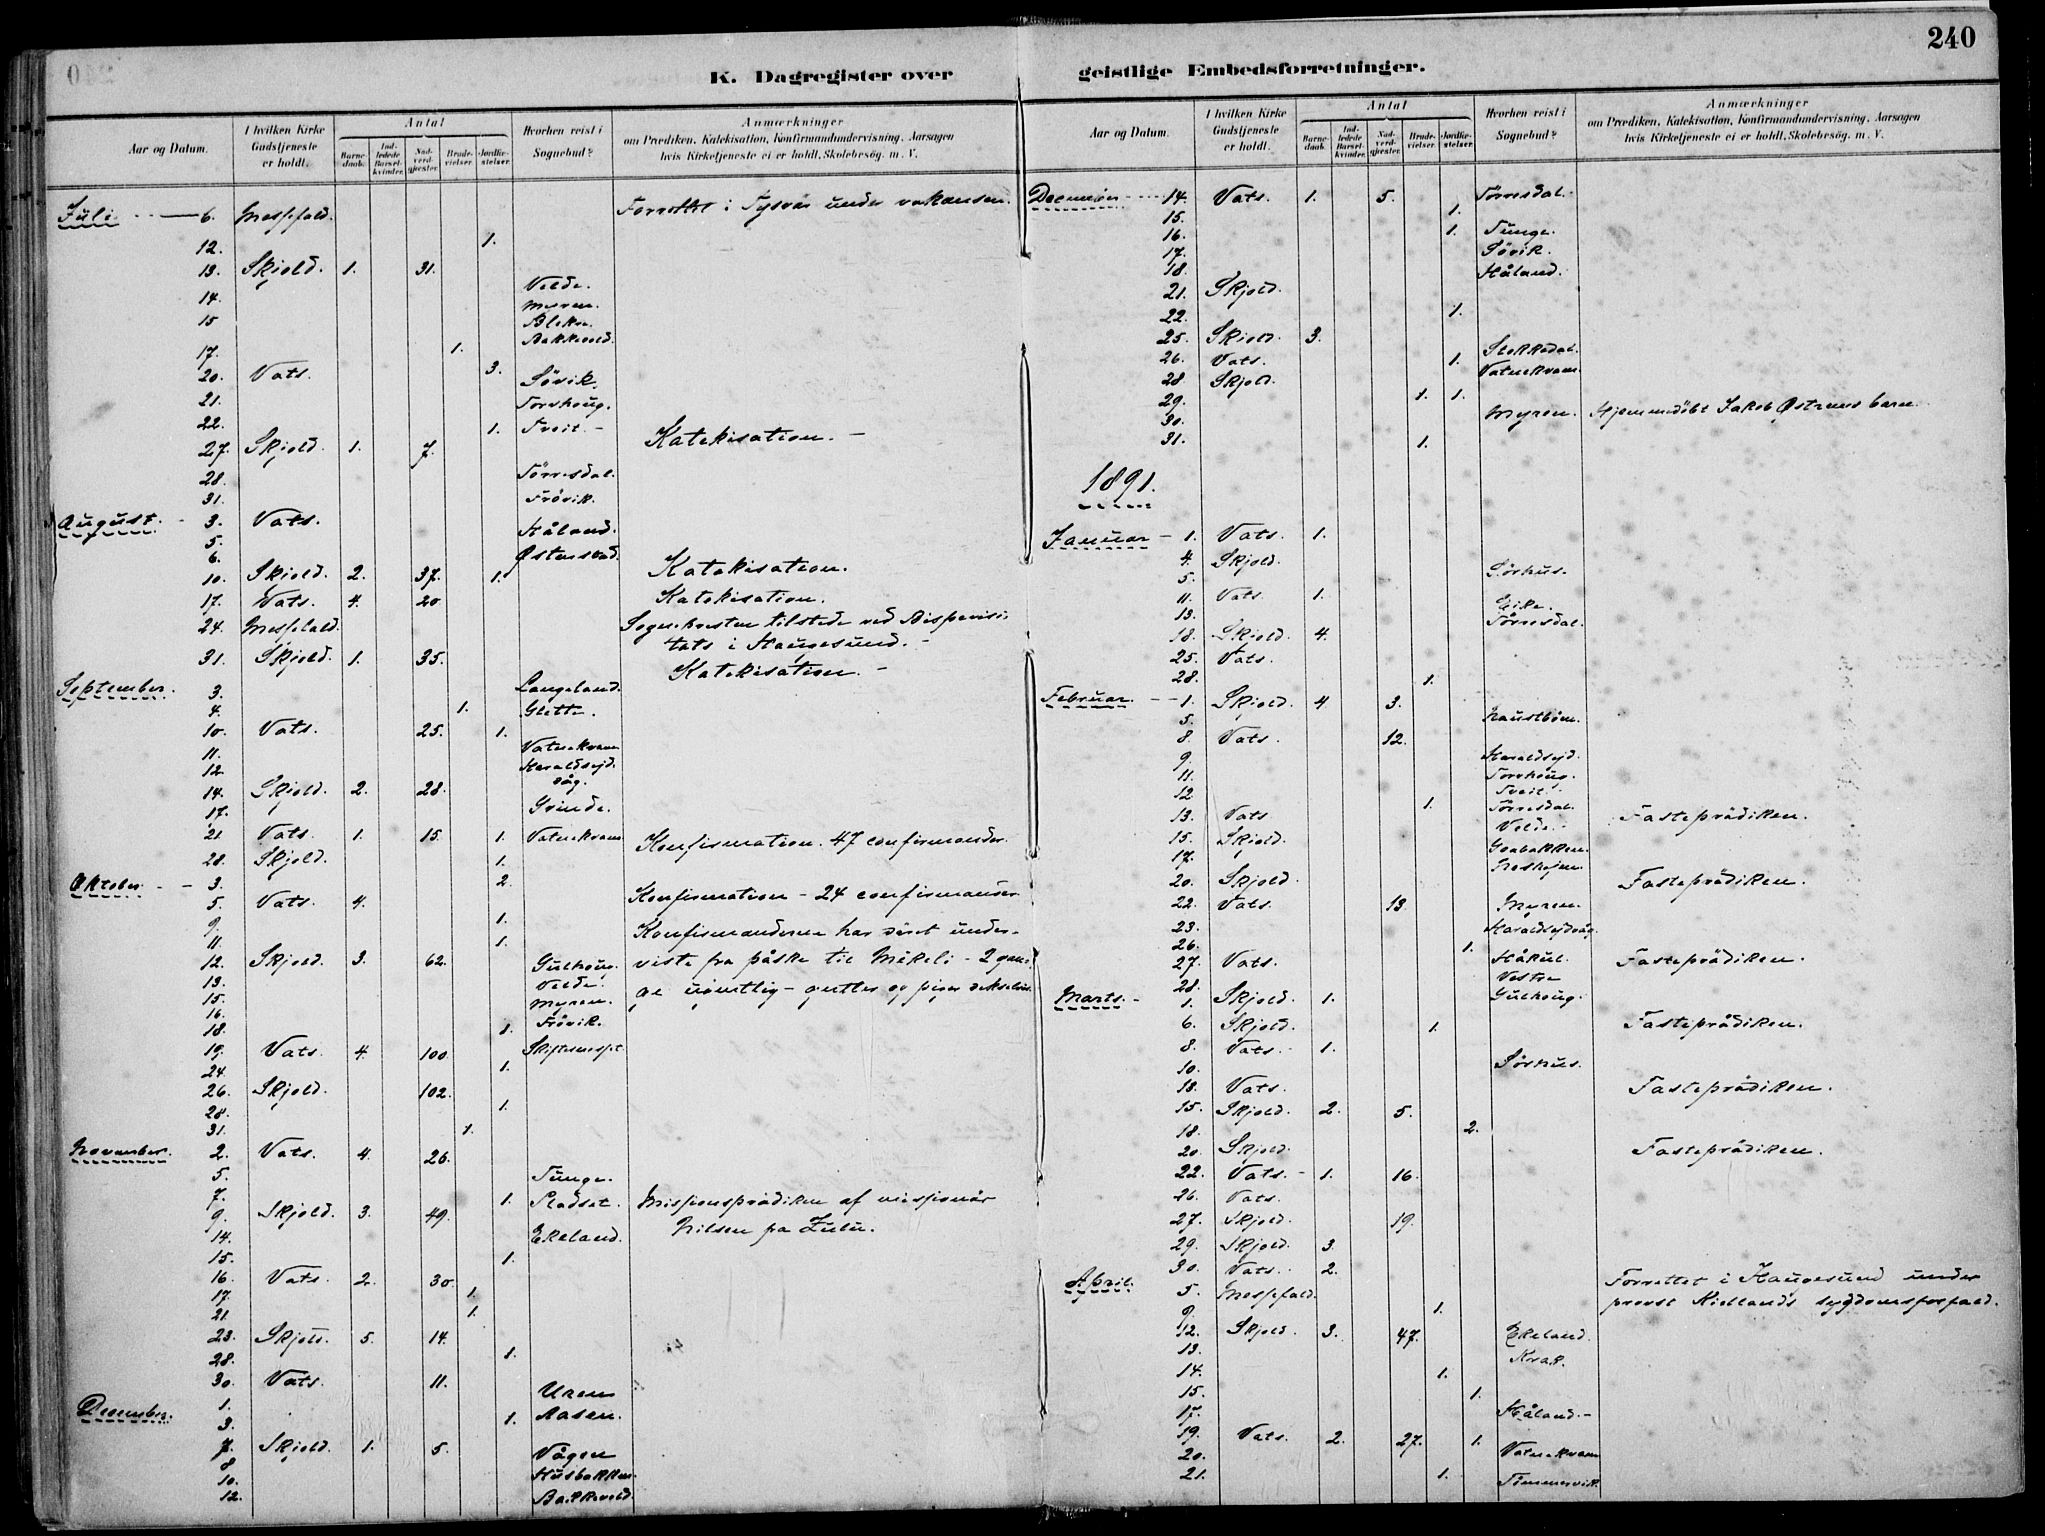 240
K. Dagregister over geistlige Embedsforretninger.
Aar og Datum. | I hvilken Kirke Gudstjeneste er holdt. | Antal | Barnedaab. | Indledede Barselkvinder. | Nadverdgjester. | Brudevielser. | Jordfæstelser. | Hvorhen reist i Sognebud? | Anmærkninger om Prædiken, Katekisation, Konfirmandundervisning, Aarsagen hvis Kirketjeneste ei er holdt, Skolebesøg. m. V.
Juli 6. Messefald. Forrettet i Tysvär under vakansen.
12. 1.
13. Skjold. 1. 31.
Velde.
14. Myren.
15
Bakkevold.
17. 1.
20. Vats. 3. Sövik.
21. Torshoug.
22. 1. Tveit. -
27. Skjold. 1. 7. Katekisation. -
28. Törresdal.
31. Frövik.
August. - 3. Vats.
5. Håland.
6.
10. Skjold. 2. 37. 1. Katekisation.
17. Vats. 4. 20 Katekisation.
24. Messefald. tilstede ved Bispevisi-
tats i Haugesund. -
31. Skjold. 1. 35. Katekisation. -
September. 3. Langeland.
4. 1. Slette.
10. Vats. 25. 1.
11. Vatnekvam
12. Haraldsejd
våg.
14. Skjold. 2. 28.
17. Grinde.
21. Vats. 1. 15. 1. Vatnekvam Konfirmation. 47 confirmander.
28. Skjold. 1.
Oktober - - 3. 2.
5. Vats. 4. Konfirmation - 24 confirmander
9. 1.
11. 1. Konfirmanderne har väret under-
12. Skjold. 3. 62. Gulhoug. viste fra påske til Mikeli - 2 gan-
13. Velde.
ge ugentlig - gutter og piger
15. Myren.
16. Frövik.
18. 1.
19. Vats. 4. 100.
24. 1.
26. Skjold. 102.
28. 1.
31. 1.
November. 2. Vats. 4. 26.
5. Tunge.
7. 1.
9. Skjold. 3. 49. Missionsprädiken af missionär
Nilsen fra Zulu.
14. Ekeland.
15. 1.
16. Vats. 2. 30.
17. 1.
21. 1.
23. Skjold. 5. 14.
28. 1.
30. Vats. 11.
December. 1. Uren
3. 1. Aasen.
7. Skjold. 1. 5. Vågen
8 Husbakken
10. Bakkevold
12.
Aar og Datum. | I hvilken Kirke Gudstjeneste er holdt. | Antal | Barnedaab. | Indledede Barselkvinder. | Nadverdgjester. | Brudevielser. | Jordfæstelser. | Hvorhen reist i Sognebud? | Anmærkninger om Prædiken, Katekisation, Konfirmandundervisning, Aarsagen hvis Kirketjeneste ei er holdt, Skolebesøg. m. V.
December 14. Vats. 1. 5. Törresdal.
15. 1.
16. 1. Tunge.
17. Sövik.
18. Håland.
21. Skjold.
22. 1.
25. Skjold. 3.
26. Vats. 1. Stokkedal.
28 Skjold. Vatnekvam
29. 1. 1.
30. Myren. Hjemmedöbt Jakob Østrems barn.
31. 1.
1891.
Januar - 1. Vats. 1.
4. Skjold.
5. Sörhus.
11. Vats. 1. Eike.
13. Törresdal.
18. Skjold. 4.
25. Vats.
28. 1.
Februar. - 1. Skjold. 4 3.
5.
8. Vats. 12.
9. Haraldsejd.
11. Torshoug.
12 1. Tveit.
13. Vats Törresdal. Fasteprädiken.
15. Skjold. Velde.
17.
20. Skjold. Fasteprädiken.
22. Vats. 13. Myren.
23. Haraldsejdvåg.
26. 1.
27. Vats. Fasteprädiken.
28. Vestre
Marts. - 1. Skjold. 1. Gulhoug.
6. Skjold. 1. Fasteprädiken.
8. Vats. - 1.
10. Sörhus.
13. Vats. Fasteprädiken.
15. Skjold. 2. 5.
18. 2.
20. Skjold. Fasteprädiken.
22. Vats. - 1. 16.
26. Vats.
27. Skjold. 19.
29. Skjold. 3.
30. Vats. 2.
April. 5. Messefald. Forrettet i Haugesund under
provst Kiellands sygdomsforfald.
9. 1.
12. Skjold. 3. 47. Ekeland.
13.
14. 1.
15. 1.
17. Håland. -
19. Vats. 2. 27. 1.
20. Vatnekvam
21. 1.